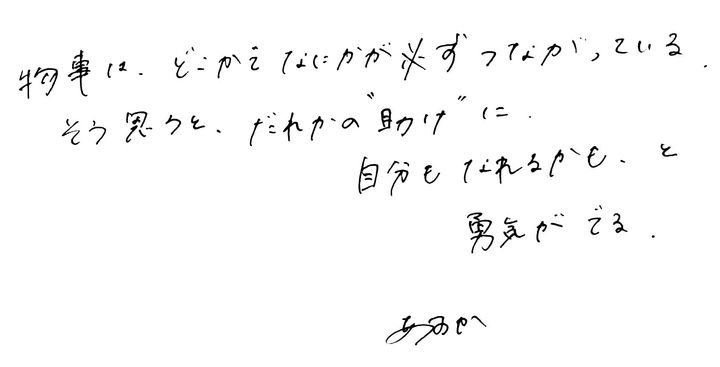 物事は、どこかでなにかが必ずつながっている.
そう思うと、だれかの"助け"に.
自分もなれるかも、と
勇気がでる.